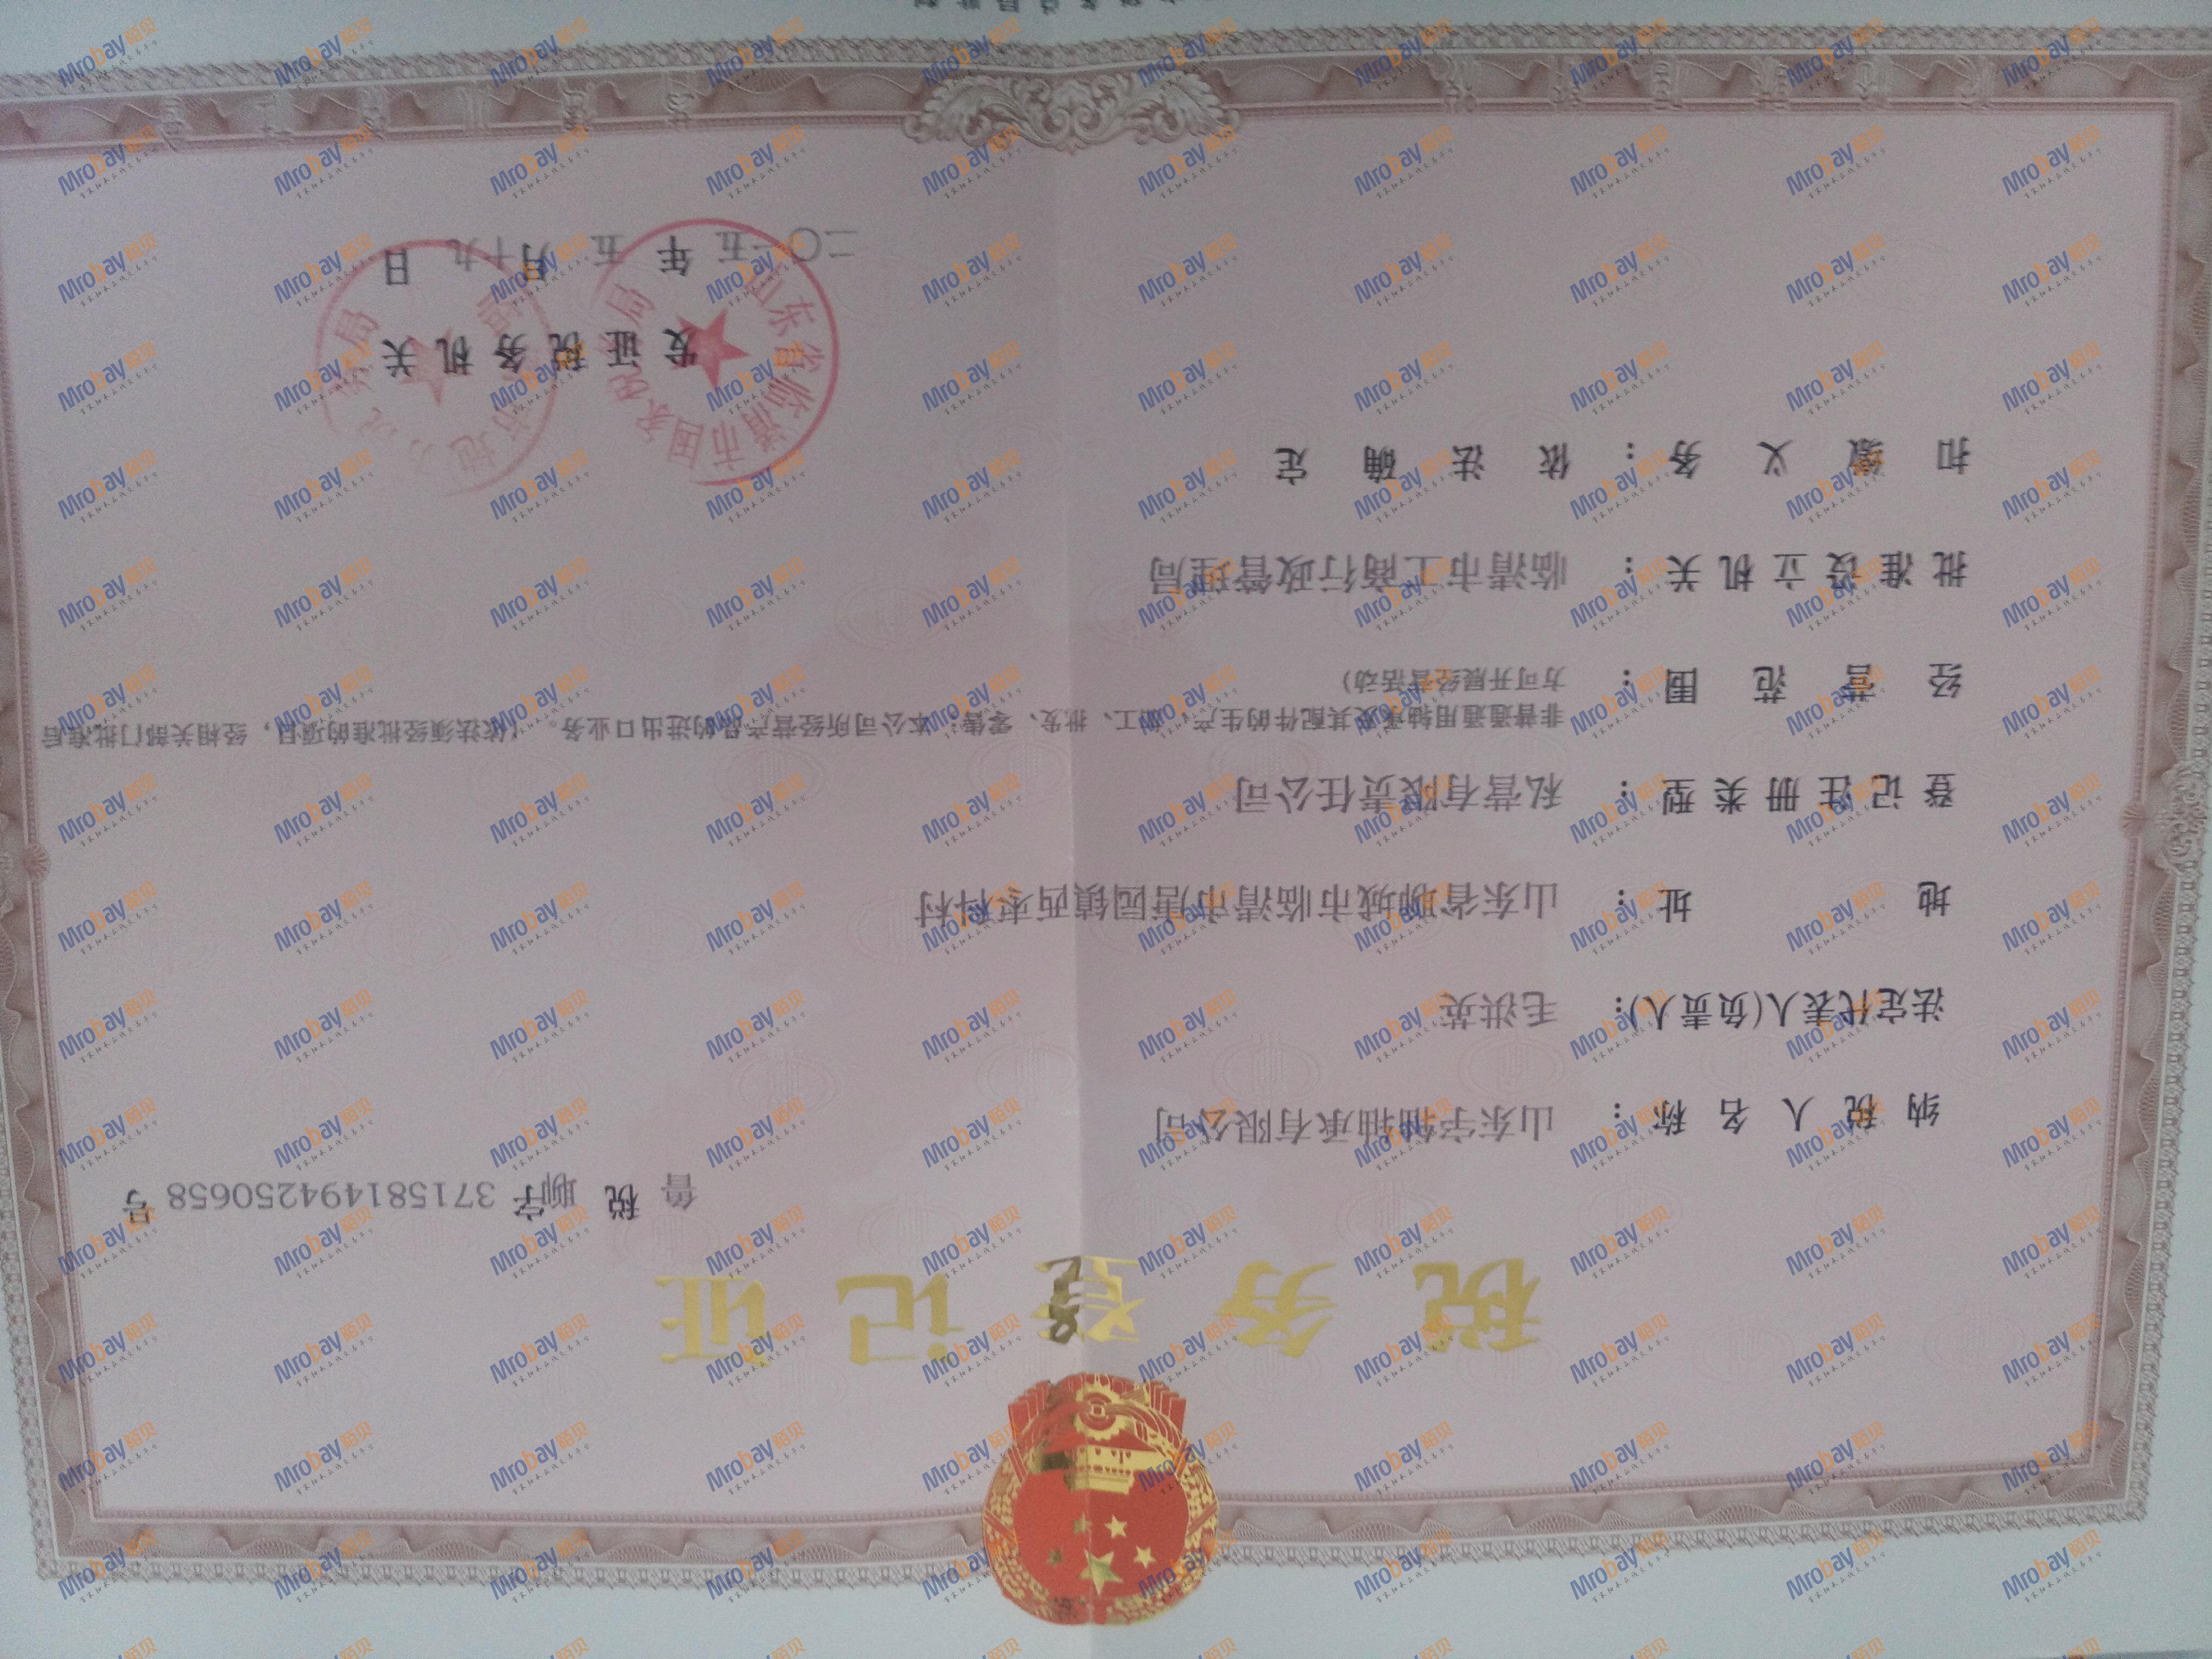 税务登记证
鲁税聊字371581494250658号
纳税人名称：山东宇轴轴承有限公司
法定代表人(负责人)：毛洪英
地址：山东省聊城市临清市唐园镇西枣科村
登记注册类型：私营有限责任公司
经营范围：非普通通用轴承及其配件的生产、加工、批发、零售；本公司所经营产品的进出口业务。（依法须经批准的项目，经相关部门批准后
方可开展经营活动)
批准设立机关：临清市工商行政管理局
扣缴义务：依法确定
发证税务机关
二〇一五年五月十九日
山东省临清市国家税务局
Mrobay陌贝